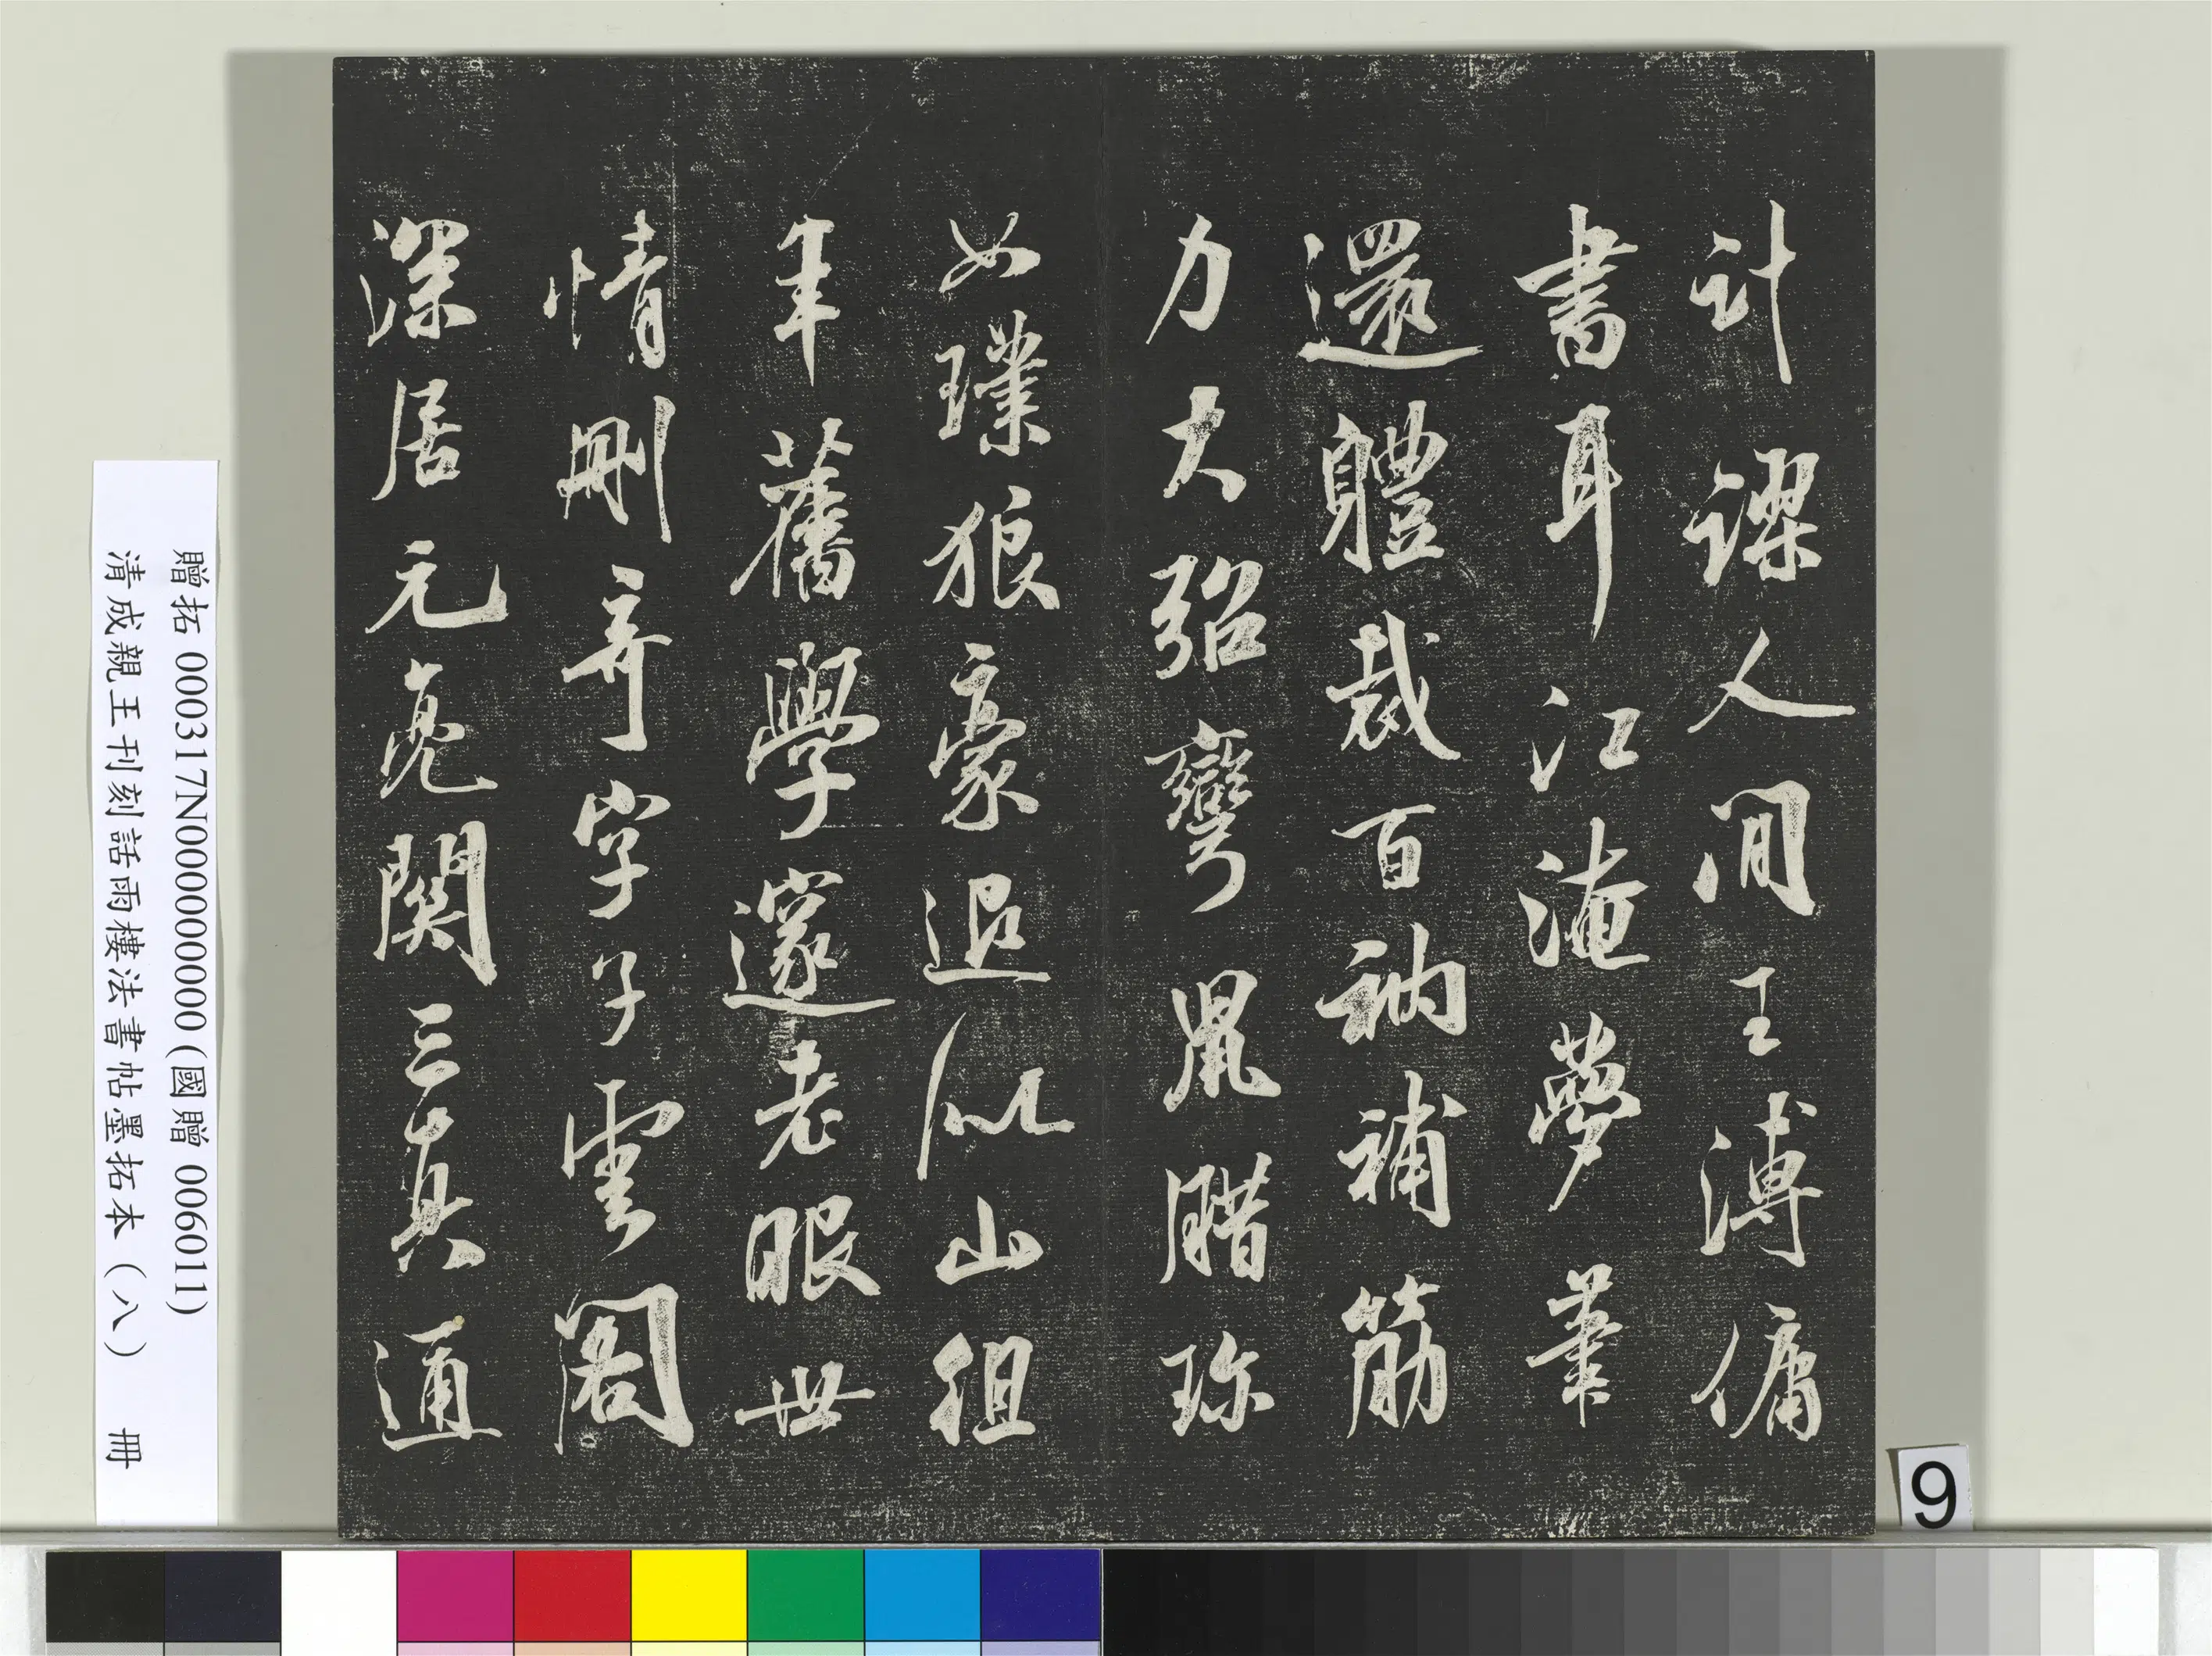 計謬人間王溥傭
書耳江淹夢筆
還體裁百衲補筋
力大弨彎鼠腊珎
如璞狼豪退似山徂
年舊學邃老眼世
情刪奇字子雲閣
深居元亮関三真通
贈拓 000317N000000000 (國贈 006011)
清成親王刊刻話雨樓法書帖墨拓本 (八) 冊
9